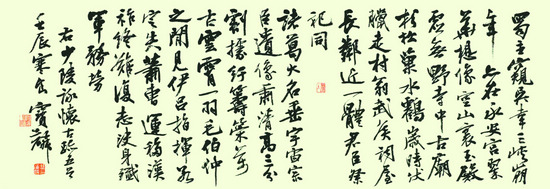 蜀主窺吳幸三峽崩
年亦在永安宮翠
華想像空山裏玉殿
虛無野寺中古廟
杉松巢水鶴歲時伏
臘走村翁武侯祠屋
長鄰近一體君臣祭
祀同
諸葛大名垂宇宙宗
臣遺像肅清高三分
割據紆籌策萬
古雲霄一羽毛伯仲
之間見伊呂指揮若
定失蕭曹運移漢
祚終難復志決身殲
軍務勞
右少陵詠懷古跡五首
壬辰寒食寶麟